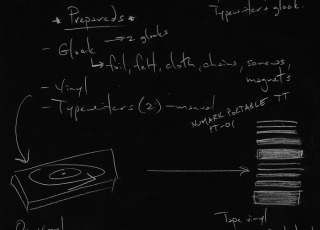 Typewriters glock.
* Prepareds *
- Glock → 2 glocks
↳ foil, felt, cloth, chains, screws,
magnets
- Vinyl
- Typewriters (2) - manual
NUMARK PORTABLE TT
PT-01
Tape vinyl